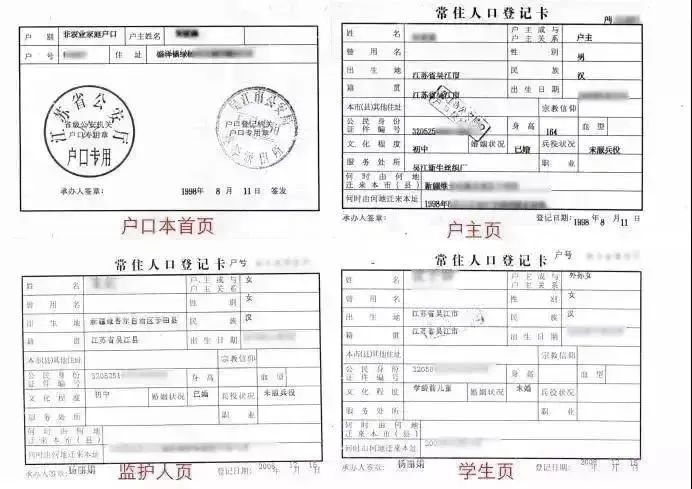 户 别 非农业家庭户口 户主姓名
户 号 住 址 盛泽镇
江苏省公安厅
省级公安机关
户口专用章
户口专用
吴江市公安局
户口登记机关
户口专用章
承办人签章: 1998年 8 月 11日 签发
户口本首页
常住人口登记卡
姓 名 户主或与户主关系 户主
曾用名 性 别 男
出生地 江苏省吴江市 民 族 汉
籍 贯 江苏省吴江市 出生日期
本市(县)其他住址 宗教信仰
公民身份证件编号 320525 身 高 164 血 型
文化程度 初中 婚姻状况 已婚 兵役状况 未服兵役
服务处所 吴江新生丝织厂
何时由何地迁来本市(县)
何时由何地迁来本址 1998年8
承办人签章: 登记日期:1998年 8月 11日
户主页
常住人口登记卡 户号
姓 名 户主或与户主关系 女
曾用名 性 别 女
出生地 新疆维吾尔自治区于田县 民 族 汉
籍 贯 江苏省吴江县 出生日期
本市(县)其他住址 宗教信仰
公民身份证件编号 3205251 身 高 血 型
文化程度 初中 婚姻状况 已婚 兵役状况 未服兵役
服务处所 职 业
何时由何地迁来本市(县)
何时由何地迁来本址
承办人签章: 杨丽娟 登记日期: 年 12月 16日
监护人页
常住人口登记卡 户号
姓 名 户主或与户主关系 外孙女
曾用名 性 别 女
出生地 江苏省吴江市 民 族 汉
籍 贯 江苏省吴江市 出生日期
本市(县)其他住址 宗教信仰
公民身份证件编号 32058 身 高 血 型
文化程度 学龄前儿童 婚姻状况 未婚 兵役状况
服务处所 职 业
何时由何地迁来本市(县)
何时由何地迁来本址
承办人签章: 杨丽娟 登记日期: 年 12月 16日
学生页